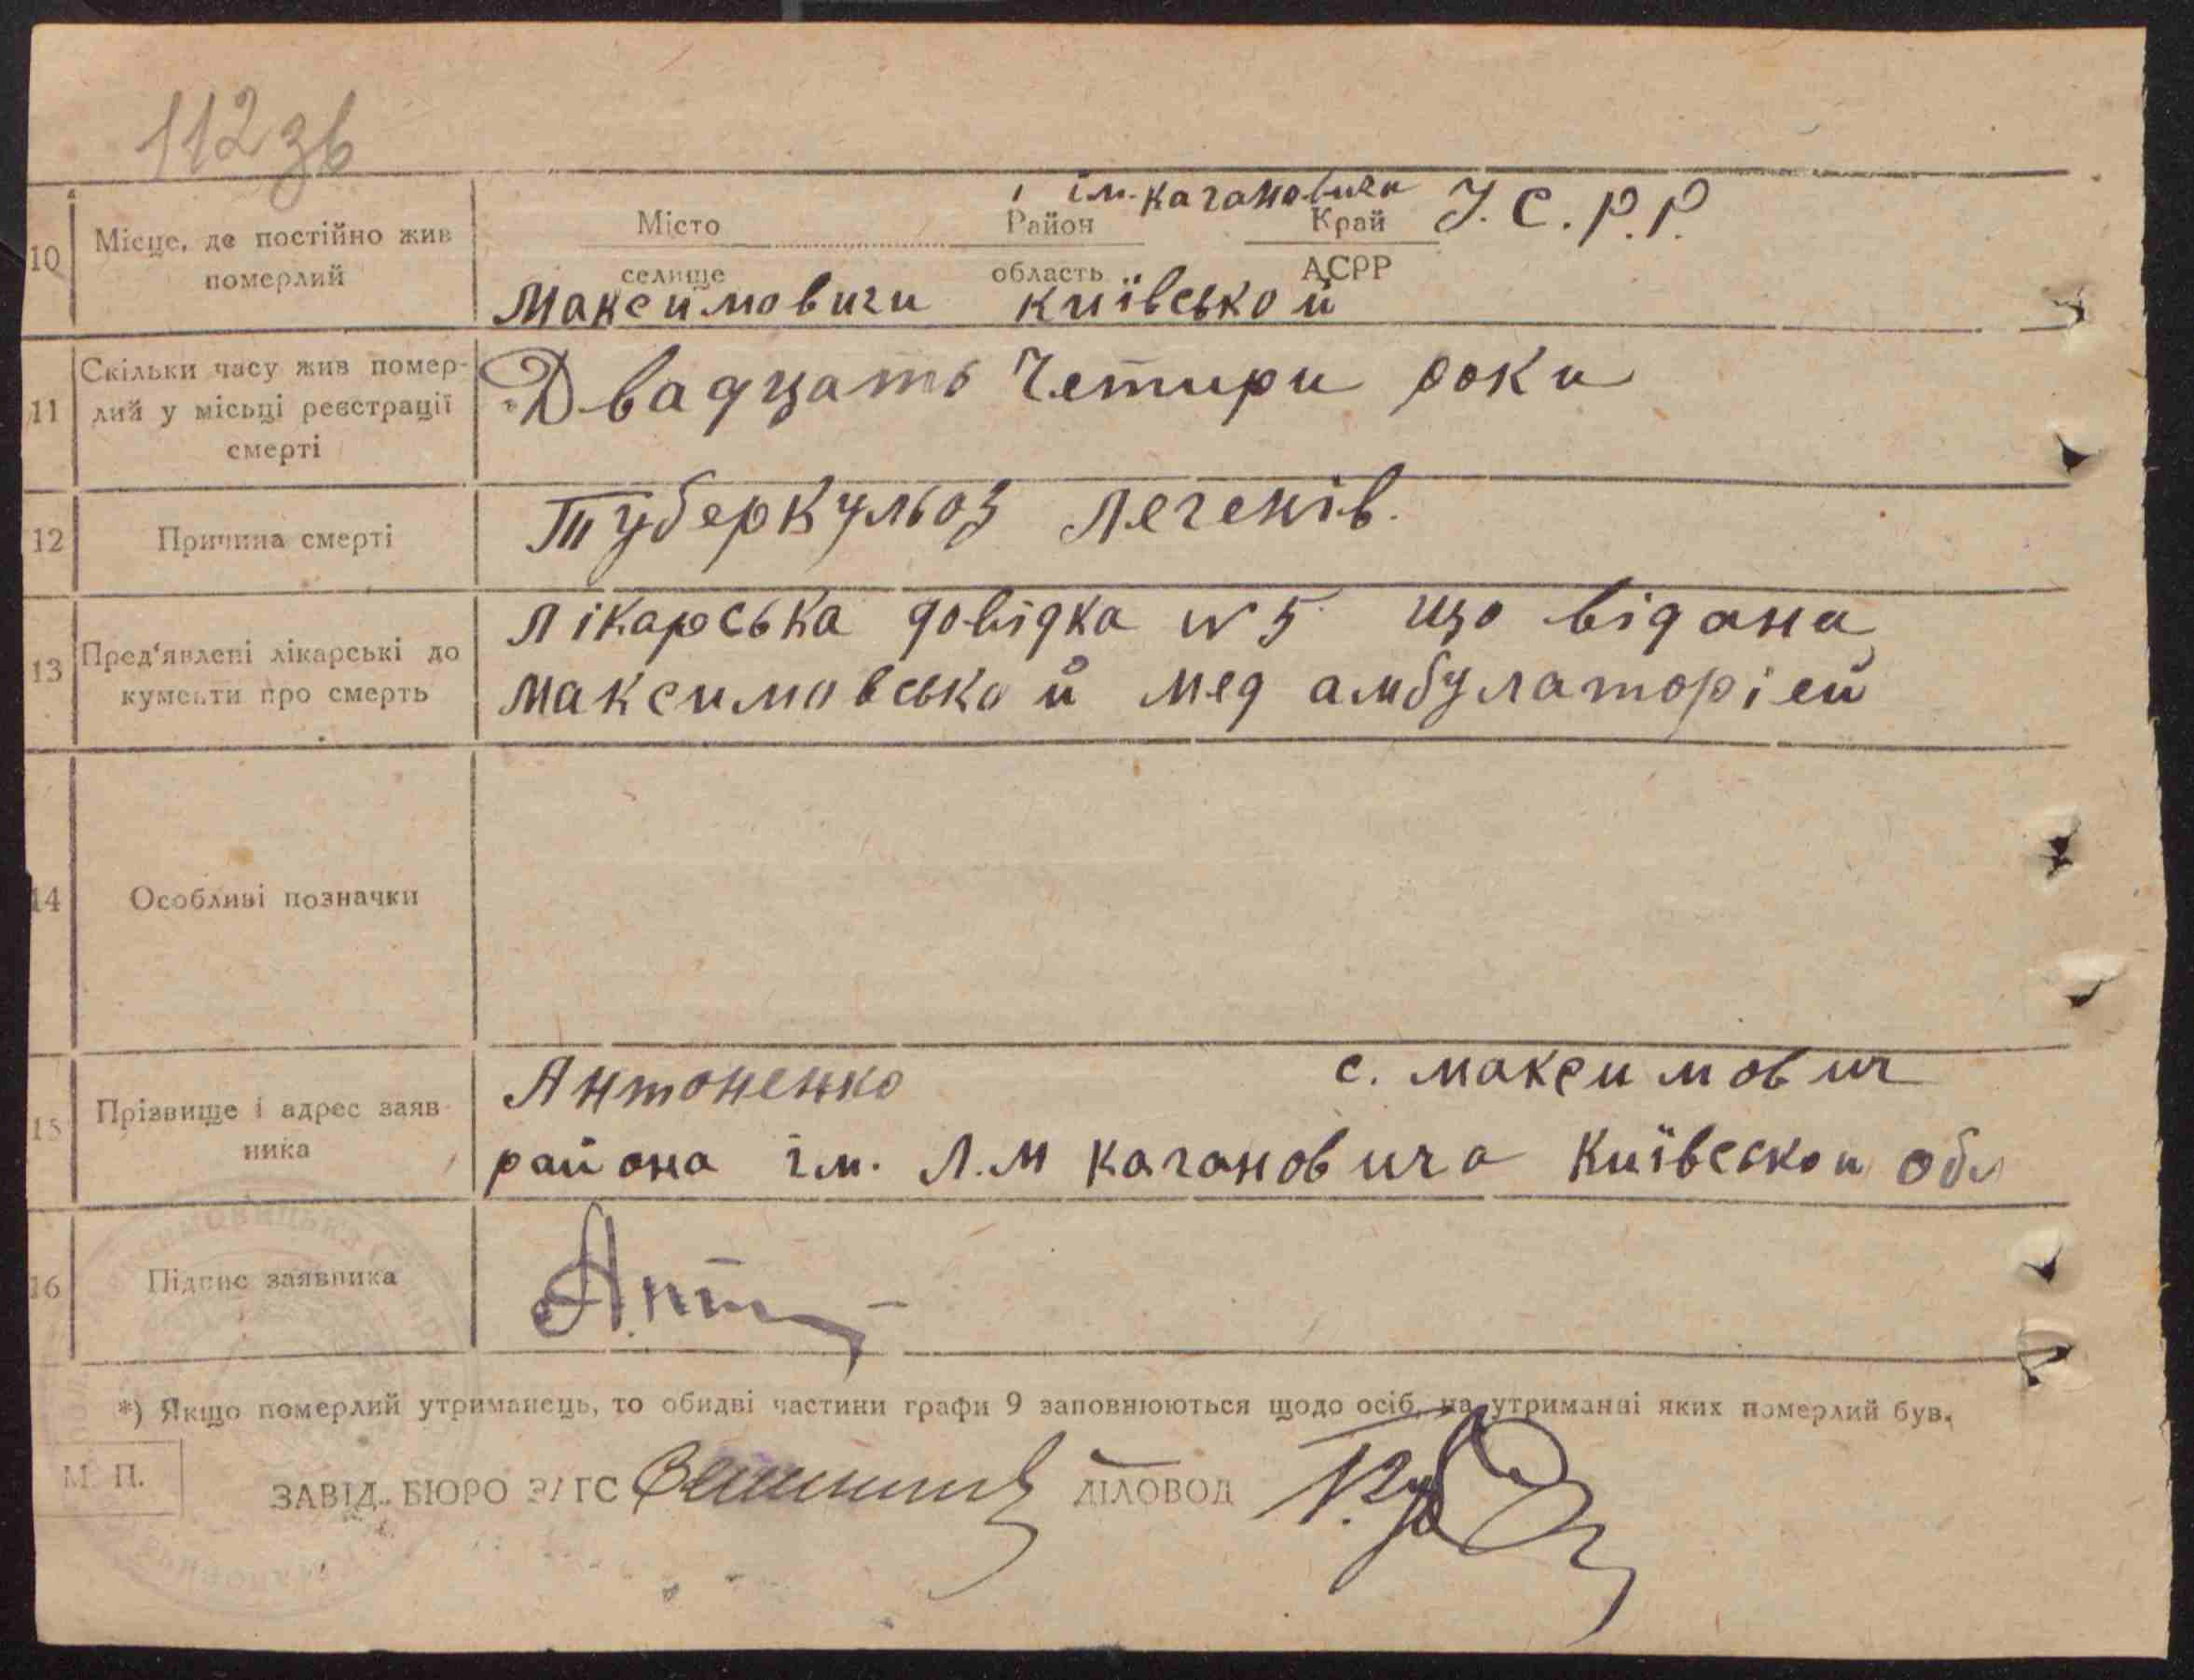 112 зв
ім. Кагановича У.С.Р.Р.
Місто Район Край
10 Місце, де постійно жив померлий
селище область АСРР
Максимовичи київськой
11 Скільки часу жив помер-
лий у місьці реєстрації
смерті
Двадцать Четири роки
12 Причина смерті
Туберкульоз легенів.
13 Пред'явлені лікарські до
кументи про смерть
лікарська довідка № 5 що відана
максимовськой мед амбулаторіей
14 Особливі позначки
15 Прізвище і адрес заяв-
ника
Антоненко с. максимович
района ім. Л.М Кагановича Київськой обл
16 Підпис заявника
Ант
*) Якщо померлий утриманець, то обидві частини графи 9 заповнюються щодо осіб, на утриманні яких померлий був.
М. П.
ЗАВІД. БЮРО ЗАГС ДІЛОВОД